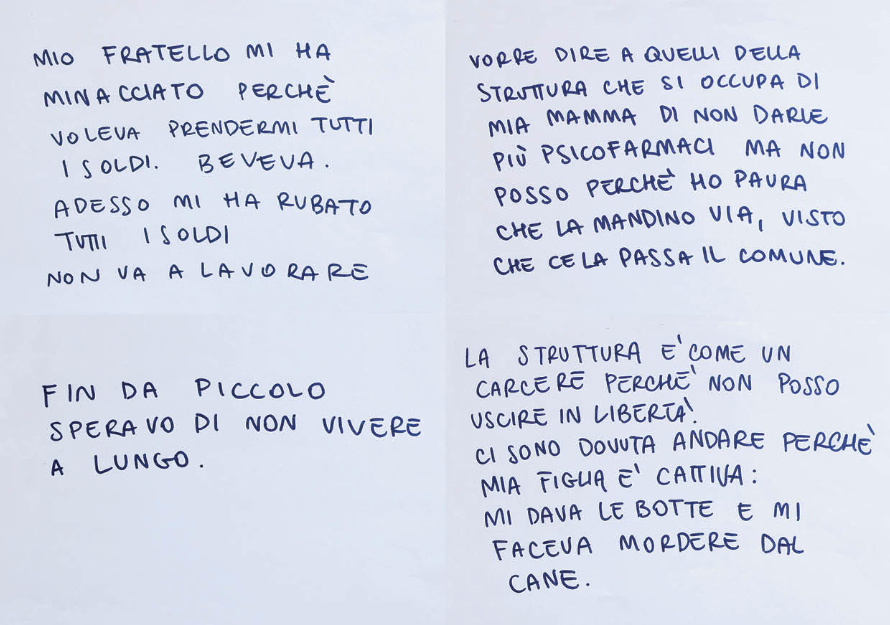 MIO FRATELLO MI HA
MINACCIATO PERCHÈ
VOLEVA PRENDERMI TUTTI
I SOLDI. BEVEVA.
ADESSO MI HA RUBATO
TUTTI I SOLDI
NON VA A LAVORARE
VORRE DIRE A QUELLI DELLA
STRUTTURA CHE SI OCCUPA DI
MIA MAMMA DI NON DARLE
PIÙ PSICOFARMACI MA NON
POSSO PERCHÈ HO PAURA
CHE LA MANDINO VIA, VISTO
CHE CE LA PASSA IL COMUNE.
FIN DA PICCOLO
SPERAVO DI NON VIVERE
A LUNGO.
LA STRUTTURA E' COME UN
CARCERE PERCHE' NON POSSO
USCIRE IN LIBERTA'.
CI SONO DOVUTA ANDARE PERCHÈ
MIA FIGLIA E' CATTIVA:
MI DAVA LE BOTTE E MI
FACEVA MORDERE DAL
CANE.